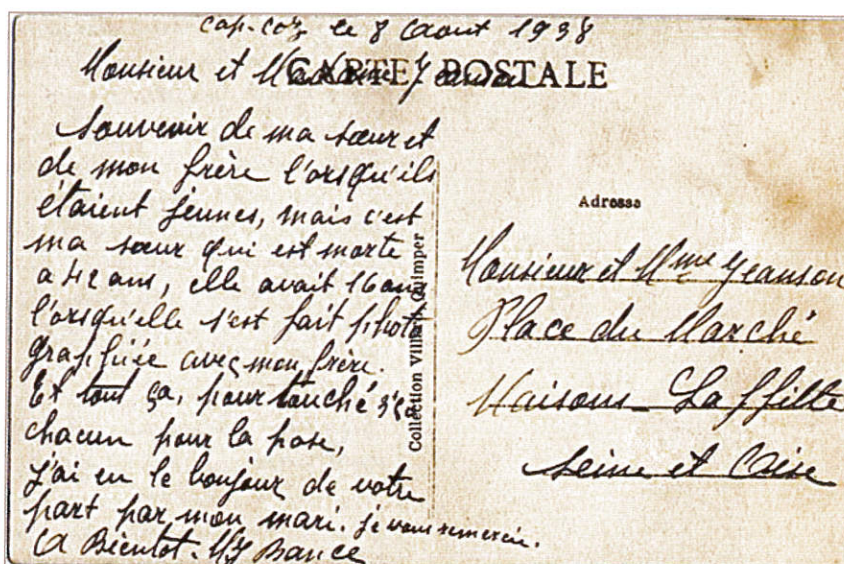 Cap-Coz le 8 Aout 1938
Monsieur et Madame Jeanson
CARTE POSTALE
Souvenir de ma sœur et
de mon frère l'orsqu'ils
étaient jeunes, mais c'est
ma sœur qui est morte
a 42 ans, elle avait 16 ans
l'orsqu'elle s'est fait photo
graphiée avec mon frère.
Et tout ça, pour touché
chacun pour la pose,
j'ai eu le bonjour de votre
part par mon mari. je vous remercie.
A Bientot. Bance
Collection Villard, Quimper
Adresse
Monsieur et Mme Jeanson
Place du Marché
Maisons-Laffitte
Seine et Oise